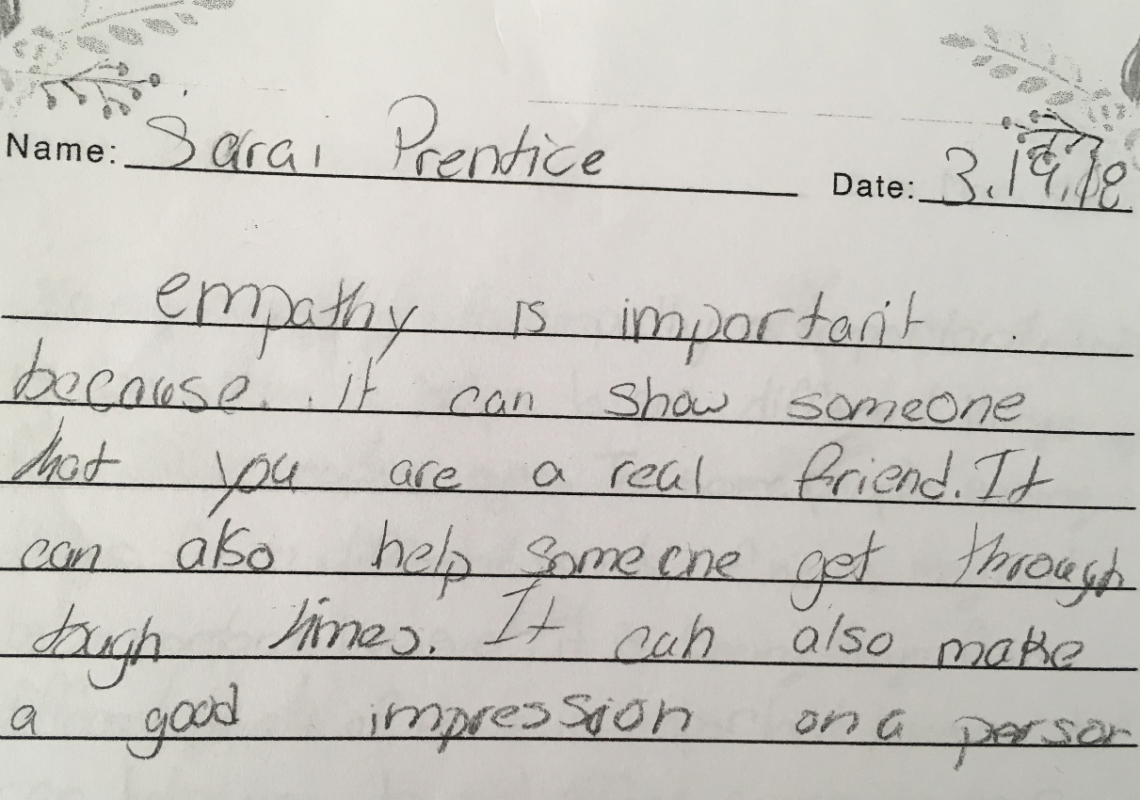 Name: Sarai Prentice Date: 3.19.18
empathy is important.
because. . it can show someone
that you are a real friend. It
can also help someone get through
tough times. It can also make
a good impression on a person